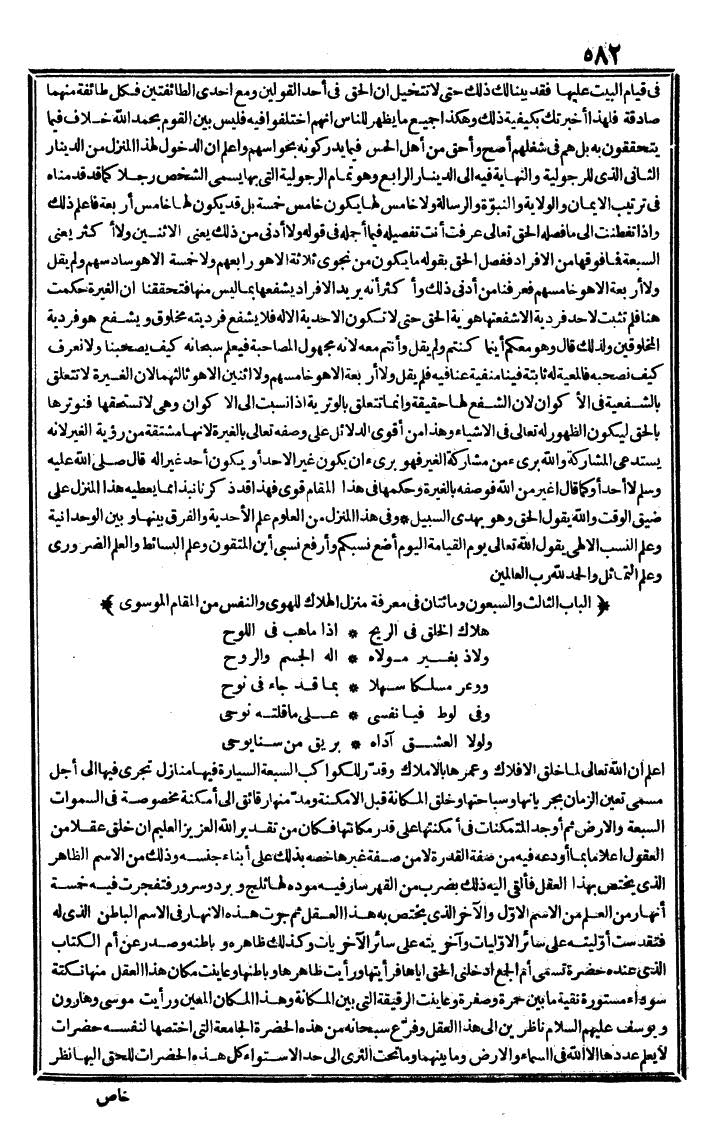 ٥٨٢
فى قيام البيت عليها فقد بينا لك ذلك حتى لا تتخيل ان الحق فى أحد القولين ومع احدى الطائفتين فكل طائفة منهما
صادقة فلهذا أخبرتك بكيفية ذلك وهكذا جميع ما يظهر للناس انهم اختلفوا فيه فليس بين القوم بحمد الله خلاف فيما
يتحققون به بل هم فى شغلهم أصح وأحق من أهل الحس فيما يدركونه بحواسهم واعلم ان الدخول لهذا المنزل من الدينار
الثانى الذى للرجولية والنهاية فيه الى الدينار الرابع وهو تمام الرجولية التى بها يسمى الشخص رجلا كما قد قدمناه
فى ترتيب الايمان والولاية والنبوّة والرسالة ولا خامس لها يكون خامس خمسة بل قد يكون لها خامس أربعة فاعلم ذلك
واذا تفطنت الى ما فصله الحق تعالى عرفت أنت تفصيله فيما أجمله فى قوله ولا أدنى من ذلك يعنى الاثنين ولا أكثر يعنى
السبعة فما فوقها من الافراد ففصل الحق بقوله ما يكون من نجوى ثلاثة الا هو رابعهم ولا خمسة الا هو سادسهم ولم يقل
ولا أربعة الا هو خامسهم فعرفنا من أدنى ذلك وأكثر أنه يريد الافراد يشفعها بما ليس منها فتحققنا ان الغيرة حكمت
هنا فلم تثبت لاحد فردية الا شفعتها هوية الحق حتى لا تكون الاحدية الا له فلا يشفع فرديته مخلوق ويشفع هو فردية
المخلوقين ولذلك قال وهو معكم أينما كنتم ولم يقل وأنتم معه لانه مجهول المصاحبة فيعلم سبحانه كيف يصحبنا ولا نعرف
كيف نصحبه فالمعية له ثابتة فينا منفية عنا فيه فلم يقل ولا أربعة الا هو خامسهم ولا اثنين الا هو ثالثهما لان الغيرة لا تتعلق
بالشفعية فى الاكوان لان الشفع لها حقيقة وانما تتعلق بالوترية اذا نسبت الى الاكوان وهى لا تستحقها فنوترها
بالحق ليكون الظهور له تعالى فى الاشياء وهذا من أقوى الدلائل على وصفه تعالى بالغيرة لانها مشتقة من رؤية الغير لانه
يستدعى المشاركة والله برىء من مشاركة الغير فهو برىء ان يكون غير الاحد أو يكون أحد غيرا له قال صلى الله عليه
وسلم لا أحد أو كما قال اغير من الله فوصفه بالغيرة وحكمها فى هذا المقام قوى فهذا قد ذكرنا نبذا مما يعطيه هذا المنزل على
ضيق الوقت والله يقول الحق وهو يهدى السبيل * وفى هذا المنزل من العلوم علم الأحدية والفرق بينها وبين الوحدانية
وعلم النسب الالهى يقول الله تعالى يوم القيامة اليوم أضع نسبكم وأرفع نسبى أين المتقون وعلم البسائط والعلم الضرورى
وعلم التماثل والحمد لله رب العالمين
﴿ الباب الثالث والسبعون ومائتان فى معرفة منزل الهلاك للهوى والنفس من المقام الموسوى ﴾
هلاك الخلق فى الريح * اذا ما هب فى اللوح
ولاذ بغير مولاه * اله الجسم والروح
ووعر مسلكا سهلا * بما قد جاء فى نوح
وفى لوط فيا نفسى * على ما قلته نوحى
ولولا العشق آداه * بريق من سنا يوحى
اعلم ان الله تعالى لما خلق الافلاك وعمرها بالاملاك وقدّر للكواكب السبعة السيارة فيها منازل تجرى فيها الى أجل
مسمى تعين الزمان بجريانها وسباحتها وخلق المكانة قبل الامكنة ومدّ منها رقائق الى أمكنة مخصوصة فى السموات
السبعة والارض ثم أوجد المتمكنات فى أمكنتها على قدر مكاناتها فكان من تقدير الله العزيز العليم ان خلق عقلا من
العقول اعلاما بما أودعه فيه من صفة القدرة لا من صفة غيرها خصه بذلك على أبناء جنسه وذلك من الاسم الظاهر
الذى يختص بهذا العقل فألقى اليه ذلك بضرب من القهر سار فيه موده لها ثلج وبرد وسرور فتفجرت فيه خمسة
أنهار من العلم من الاسم الاوّل والآخر الذى يختص به هذا العقل ثم جرت هذه الانهار فى الاسم الباطن الذى له
فتقدست أوّليته على سائر الاوّليات وآخريته على سائر الآخريات وكذلك ظاهره وباطنه وصدر عن أم الكتاب
الذى عنده حضرة تسمى أم الجمع ادخلنى الحق اياها فرأيتها ورأيت ظاهرها وباطنها وعاينت مكان هذا العقل منها نكتة
سوداء مستورة نقية ما بين حمرة وصفرة وعاينت الرقيقة التى بين المكانة وهذا المكان المعين ورأيت موسى وهارون
ويوسف عليهم السلام ناظرين الى هذا العقل وفرّع سبحانه من هذه الحضرة الجامعة التى اختصها لنفسه حضرات
لا يعلم عددها الا الله فى السماء والارض وما بينهما وما تحت الثرى الى حد الاستواء كل هذه الحضرات للحق اليها نظر
خاص